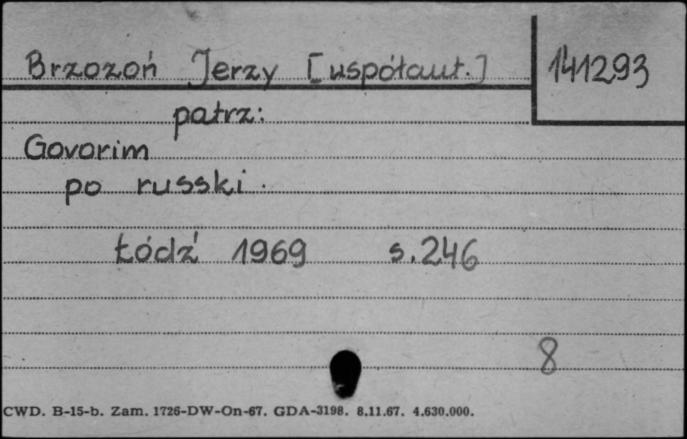 Brzozoń Jerzy [współaut.] 141293
patrz:
Govorim
po russki.
Łódź 1969 s. 246
8
CWD. B-15-b. Zam. 1726-DW-On-67. GDA-3198. 8.11.67. 4.630.000.